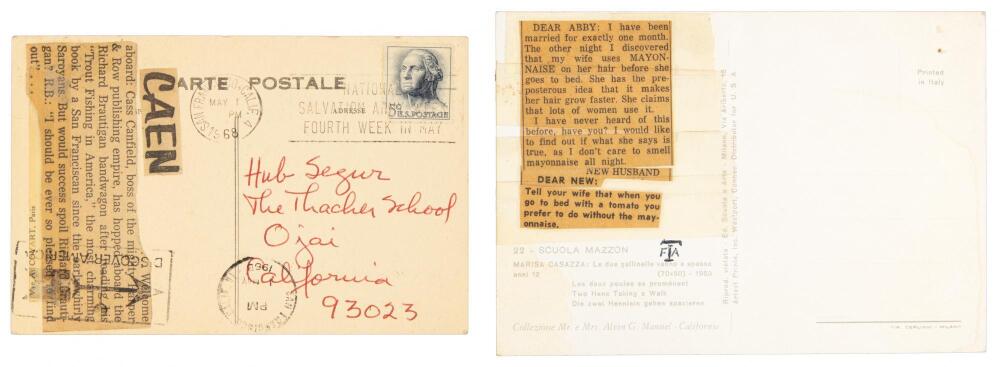 CARTE POSTALE
ADRESSE
5c U.S. POSTAGE
SAN FRANCISCO, CALIF. 4
MAY 1
PM
1968
NATIONAL
SALVATION ARMY
FOURTH WEEK IN MAY
CAEN
Welcome
aboard: Cass Canfield, boss of the mighty Harper
& Row publishing empire, has hopped aboard the
Richard Brautigan bandwagon after reading his
"Trout Fishing in America," the most charming
book by a San Franciscan since the early, whirly
Saroyans. But would success spoil Richard Brauti-
gan? R.B.: "I should be ever so pleased to find
out" . . .
Hub Segur
The Thacher School
Ojai
California
93023
PM
DEAR ABBY: I have been
married for exactly one month.
The other night I discovered
that my wife uses MAYON-
NAISE on her hair before she
goes to bed. She has the pre-
posterous idea that it makes
her hair grow faster. She claims
that lots of women use it.
I have never heard of this
before, have you? I would like
to find out if what she says is
true, as I don't care to smell
mayonnaise all night.
NEW HUSBAND
DEAR NEW:
Tell your wife that when you
go to bed with a tomato you
prefer to do without the may-
onnaise.
22 - SCUOLA MAZZON
MARISA CASAZZA: Le due gallinelle vanno a spasso
anni 12 (70x50) - 1953
Les deux poules se promènent
Two Hens Taking a Walk
Die zwei Hennlein gehen spazieren
Collezione Mr. e Mrs. Alvin G. Manuel - California
FTA
Riprod. vietata - Ed. Scuola e Arte - Milano, Via Ariberto 16
Artext Prints, Inc. Westport, Connec. Distributor for U.S.A.
Printed
in Italy